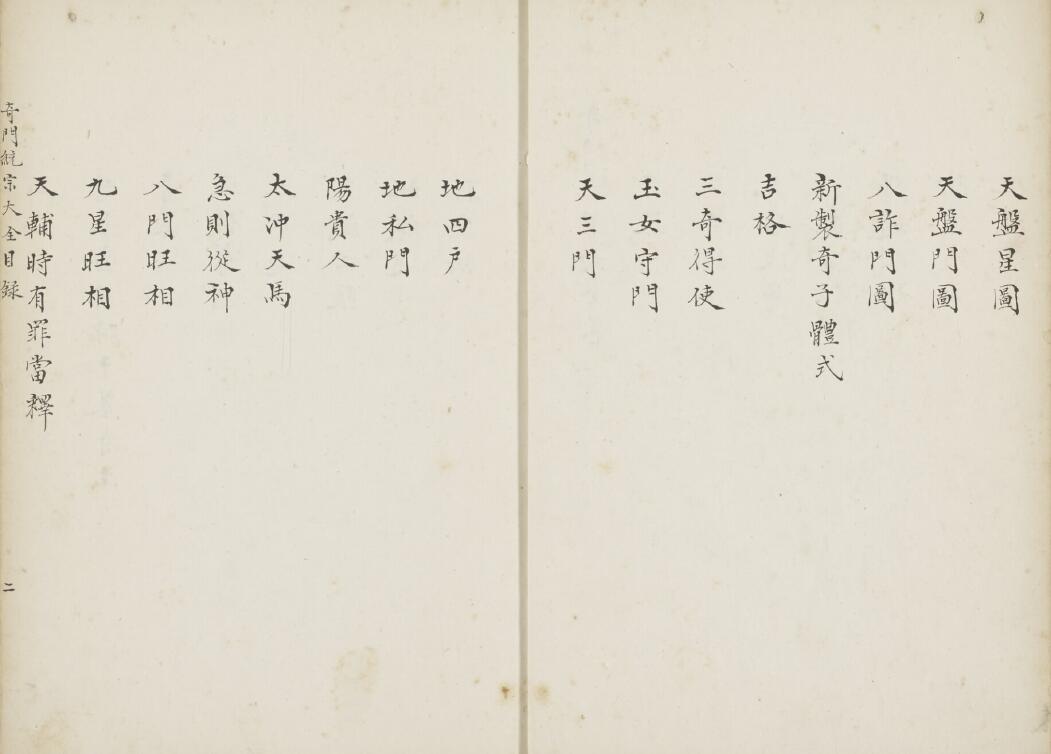 天盤星圖
天盤門圖
八詐門圖
新製奇子體式
吉格
三奇得使
玉女守門
天三門
地四户
地私門
陽賞人
太冲天馬
急則從神
八門旺相
九星旺相
天輔時有罪當釋
奇門統宗大全目録
二